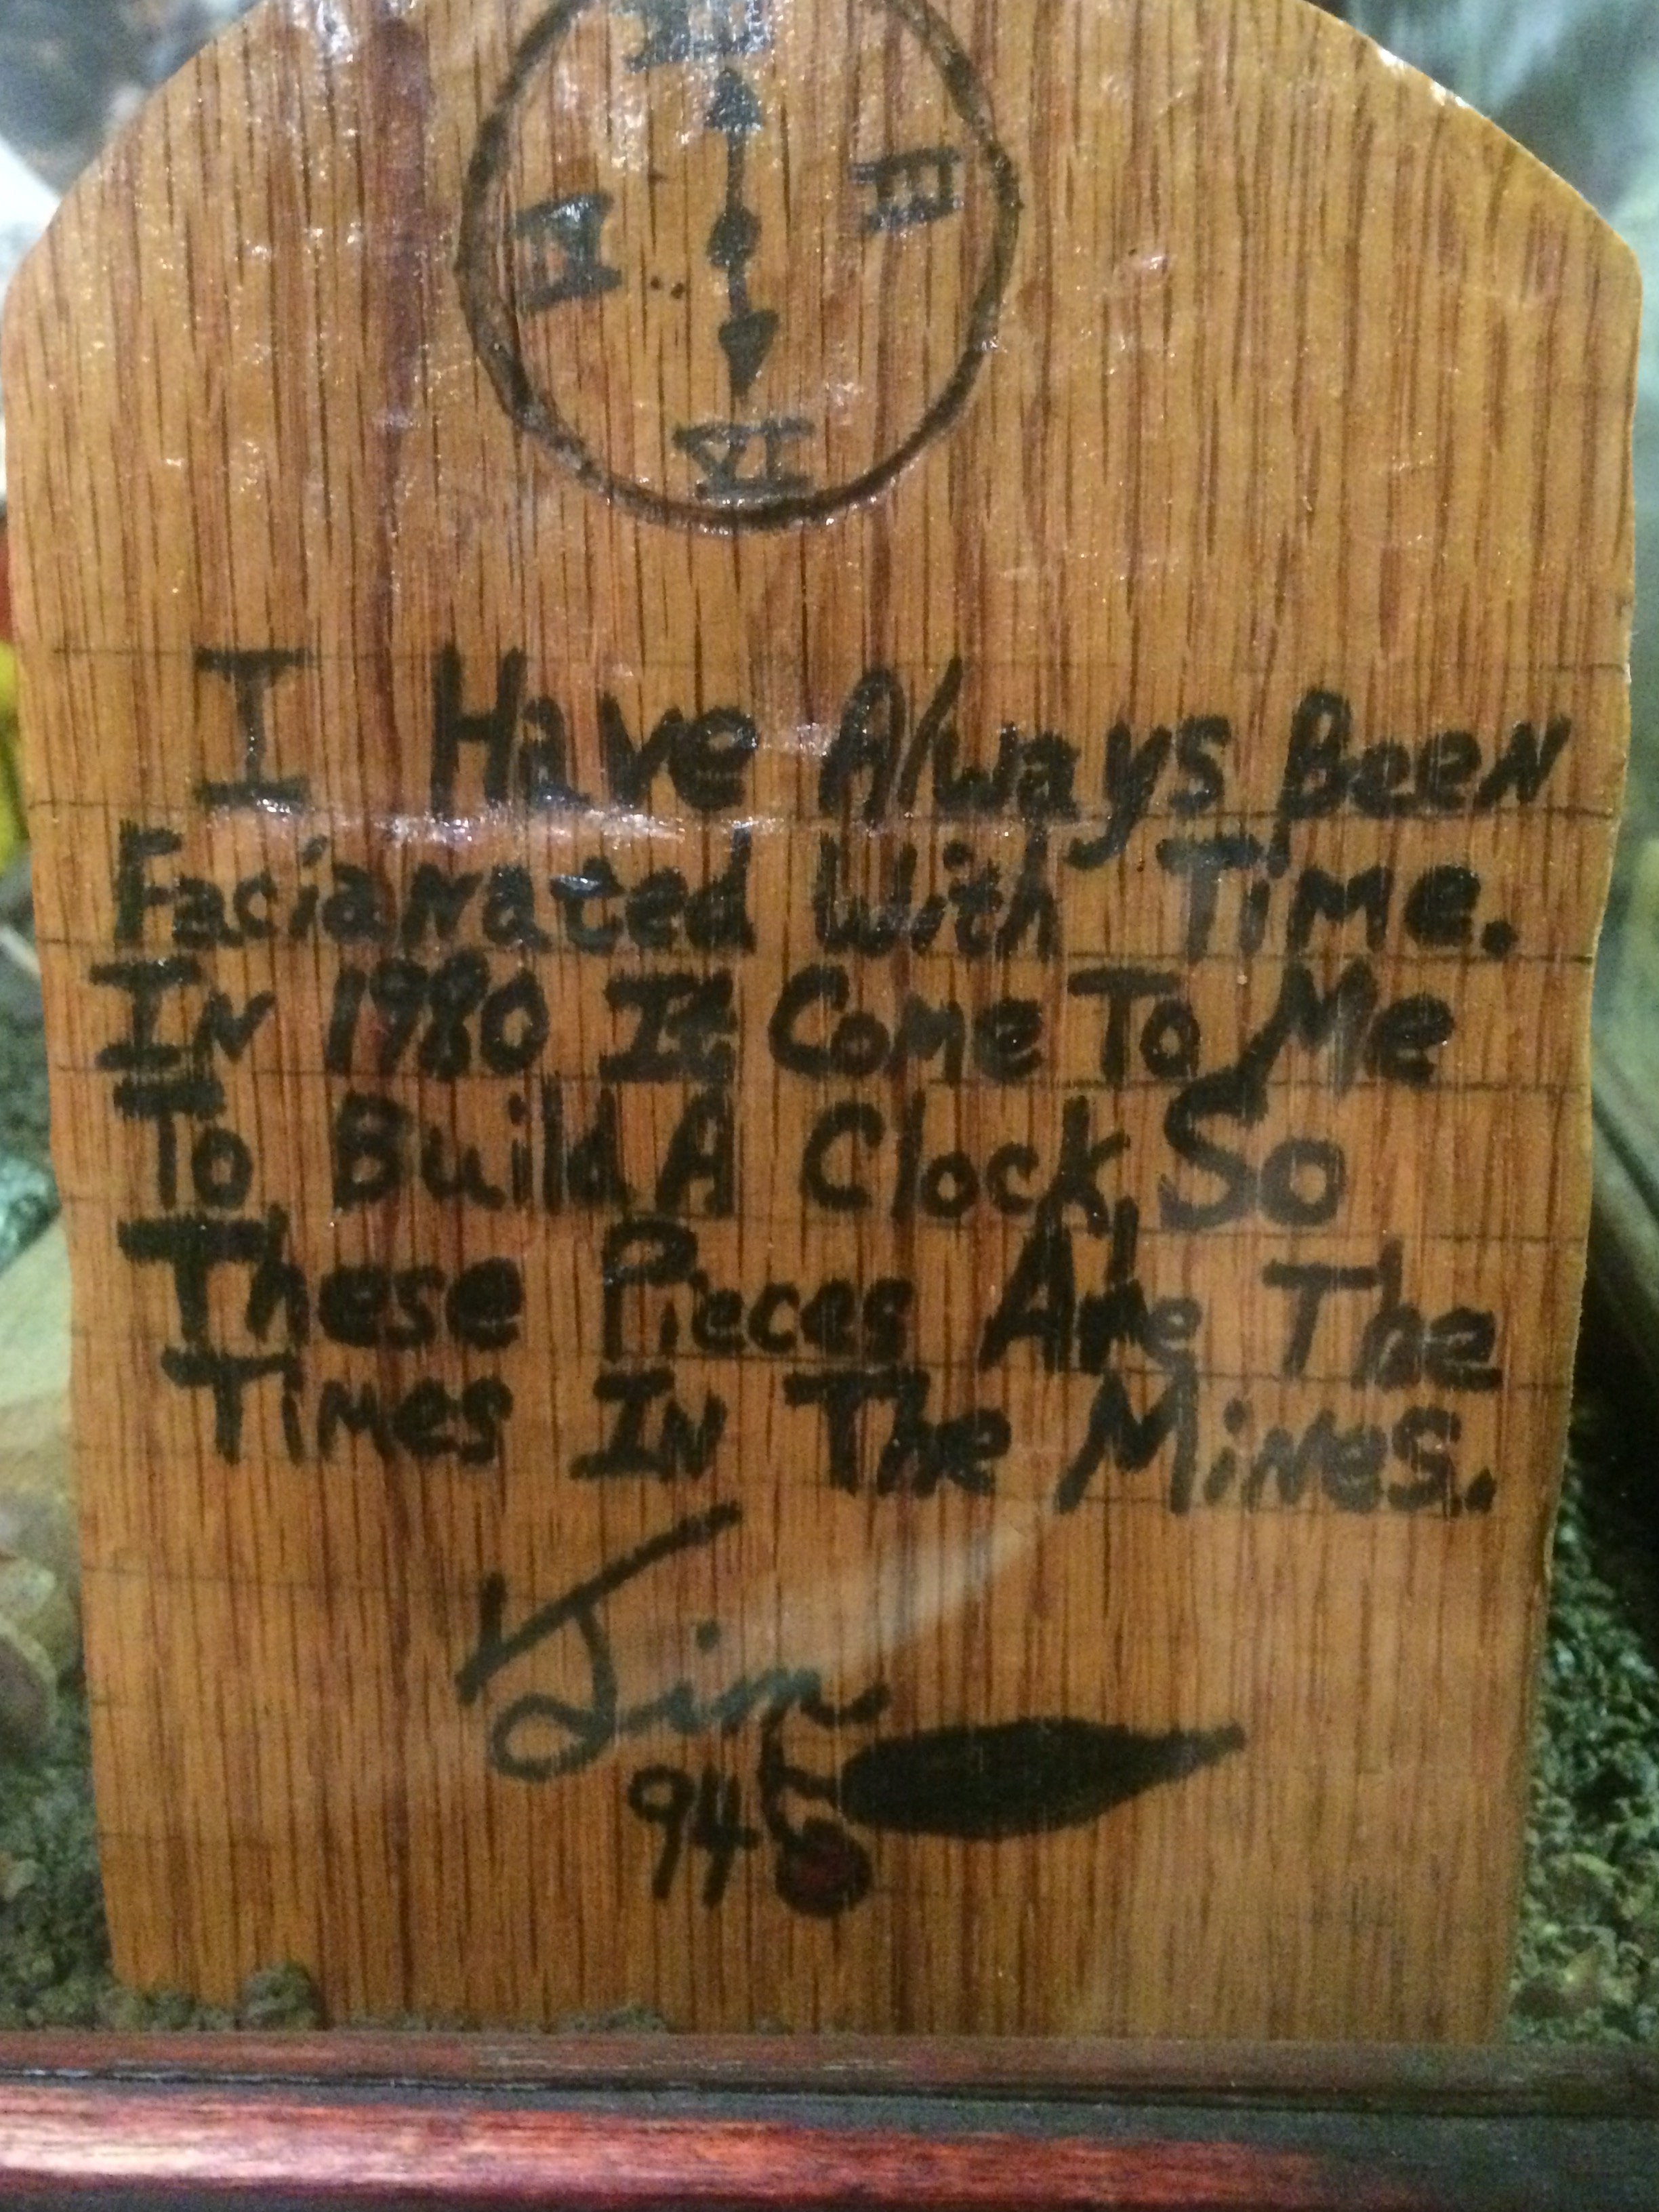 XII
III
IX
VI
I Have Always Been
Facianated With Time.
In 1980 It Come To Me
To Build A Clock, So
These Pieces Are The
Times In The Mines.
Jim
94